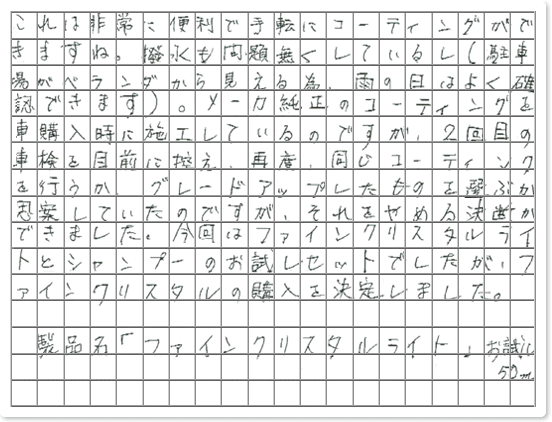 これは非常に便利で手転にコーティングがで
きますね。撥水も問題無くしているし(駐車
場がベランダから見える為、雨の日はよく確
認できます)。メーカ純正のコーティングを
車購入時に施工しているのですが、2回目の
車検を目前に控え、再度、同じコーティング
を行うか、グレードアップしたものを選ぶか
思案していたのですが、それをやめる決断が
できました。今回はファインクリスタルライ
トとシャンプーのお試しセットでしたが、フ
ァインクリスタルの購入を決定しました。
製品名「ファインクリスタルライト」お試し
50ml